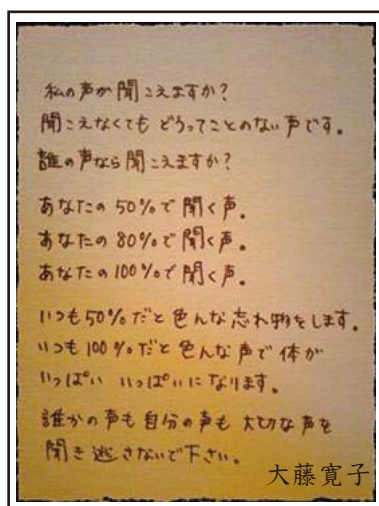 私の声が聞こえますか?
聞こえなくても どうってことのない声です。
誰の声なら聞こえますか?
あなたの50%で聞く声。
あなたの80%で聞く声。
あなたの100%で聞く声。
いつも50%だと色んな忘れ物をします。
いつも100%だと色んな声で体が
いっぱい いっぱいになります。
誰かの声も自分の声も 大切な声を
聞き逃さないで下さい。
大藤寛子